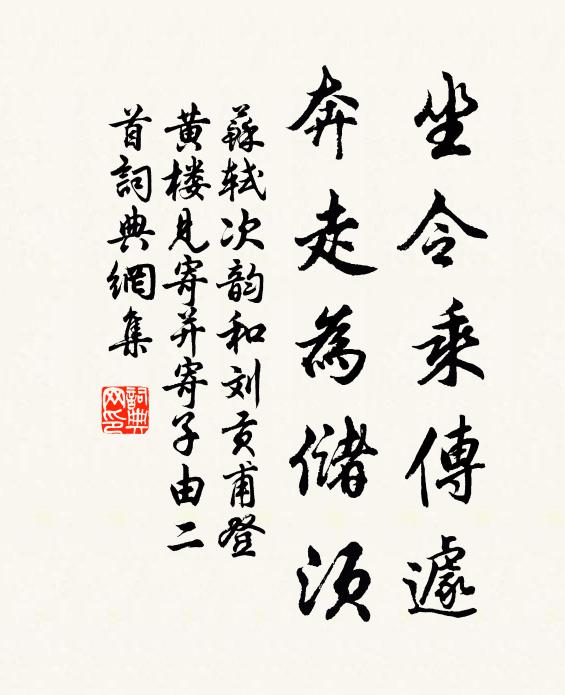 坐令乘傳遽
奔走為儲須
蘇軾次韵和刘贡甫登
黄楼见寄并寄子由二
首詞典網集
詞典网印